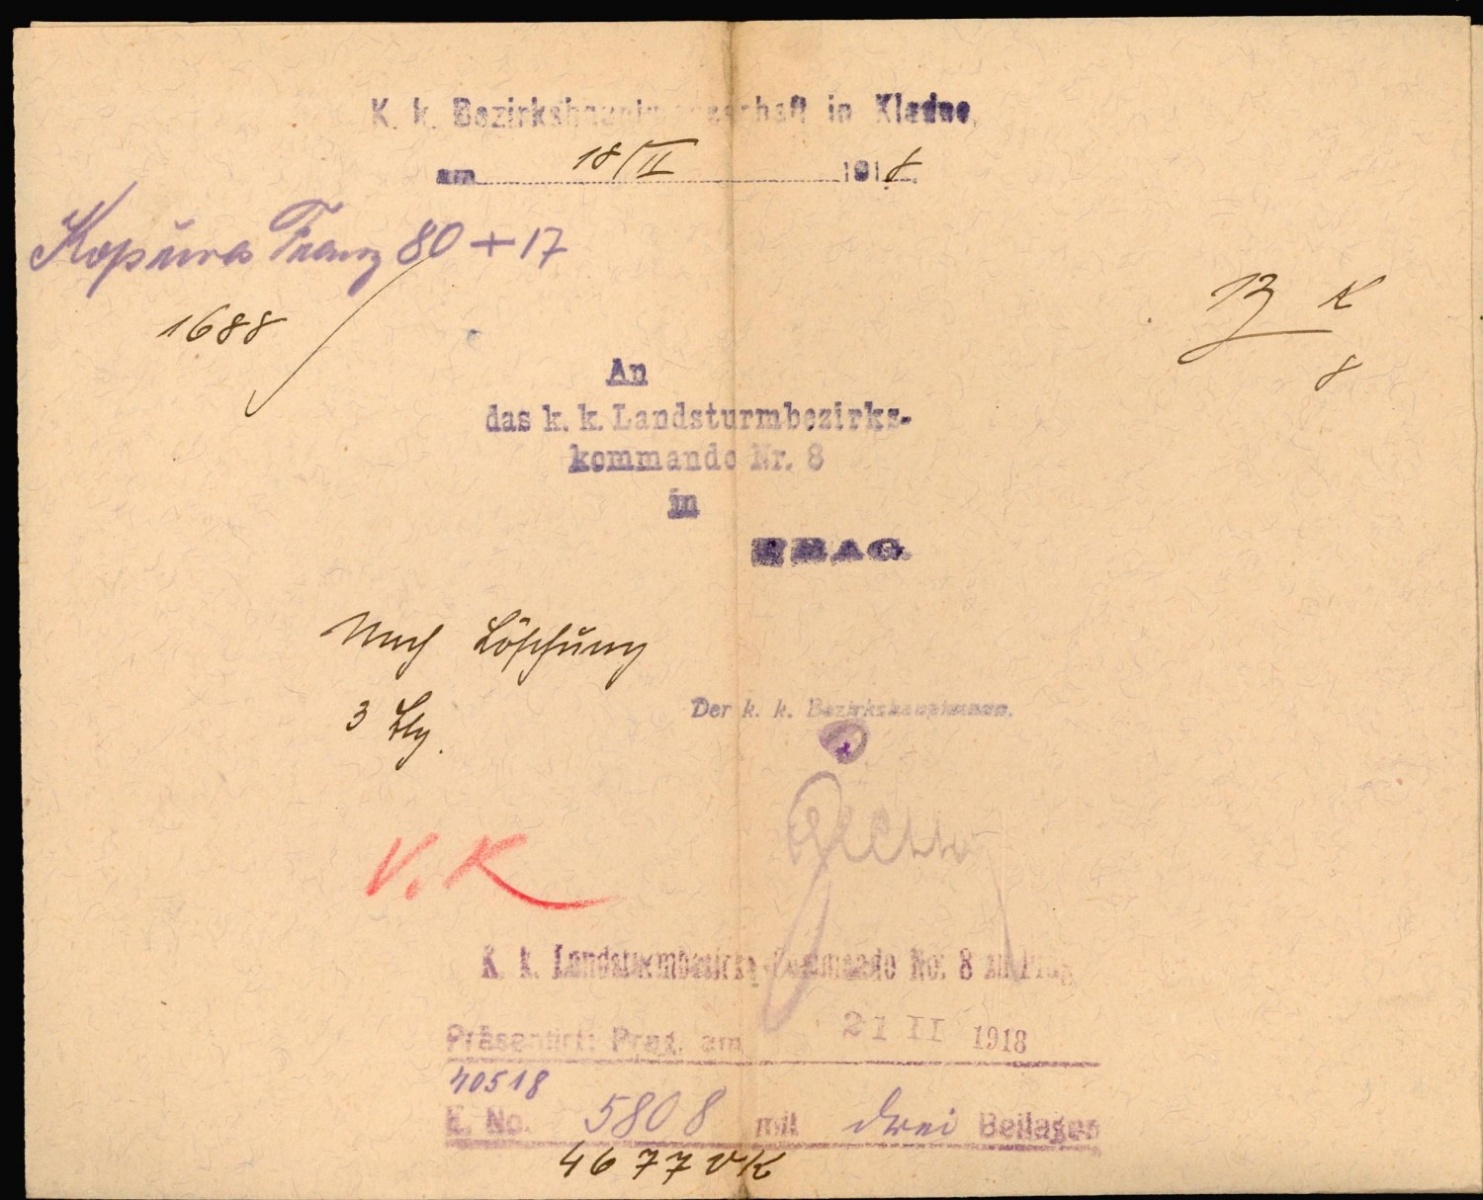 K. k. Bezirkshauptmannschaft in Kladno,
am 18/II 1918.
Kopůva Franz 80 + 17
1688
13 K
8
An
das k. k. Landsturmbezirks-
kommando Nr. 8
in
PRAG.
Nach Löschung
3 Blg.
Der k. k. Bezirkshauptmann.
V. K
K. k. Landsturmbezirks-Commando No: 8 in Prag
Präsentirt: Prag, am 21 II 1918
40518
E. No. 5808 mit drei Beilagen
4677 VK